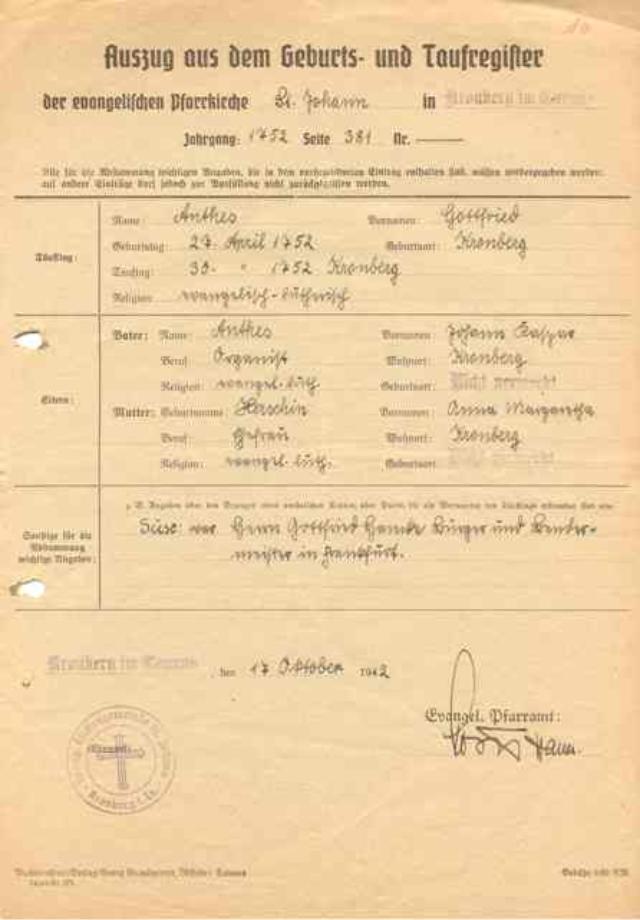 Auszug aus dem Geburts- und Taufregister
der evangelischen Pfarrkirche St. Johann in Kronberg im Taunus
Jahrgang: 1752 Seite 381 Nr. —
Alle für die Abstammung wichtigen Angaben, die in dem vorbezeichneten Eintrag enthalten sind, müssen wiedergegeben werden;
auf andere Einträge darf jedoch zur Ausfüllung nicht zurückgegriffen werden.
Täufling:
Name: Anthes Vornamen: Gottfried
Geburtstag: 27. April 1752 Geburtsort: Kronberg
Tauftag: 30. " 1752 Kronberg
Religion: evangelisch-lutherisch
Eltern:
Vater: Name: Anthes Vornamen: Johann Kaspar
Beruf: Organist Wohnort: Kronberg
Religion: evangel. luth. Geburtsort: Nicht vermerkt
Mutter: Geburtsname: Vornamen: Anna Margaretha
Beruf: Ehefrau Wohnort: Kronberg
Religion: evangel. luth. Geburtsort: Nicht vermerkt
Sonstige für die
Abstammung
wichtige Angaben:
war Herr Gottfried Bürger und Bender-
meister in Frankfurt.
Kronberg im Taunus, den 17 Oktober 1942
Evangel. Pfarramt:
Kronberg i. Ts.